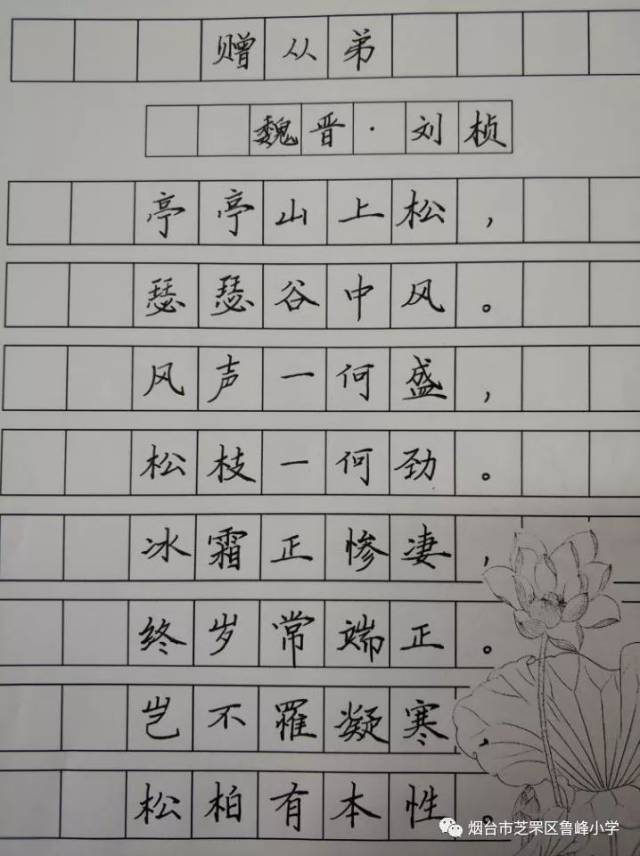 赠从弟
魏晋·刘桢
亭亭山上松，
瑟瑟谷中风。
风声一何盛，
松枝一何劲。
冰霜正惨凄，
终岁常端正。
岂不罹凝寒，
松柏有本性。
烟台市芝罘区鲁峰小学